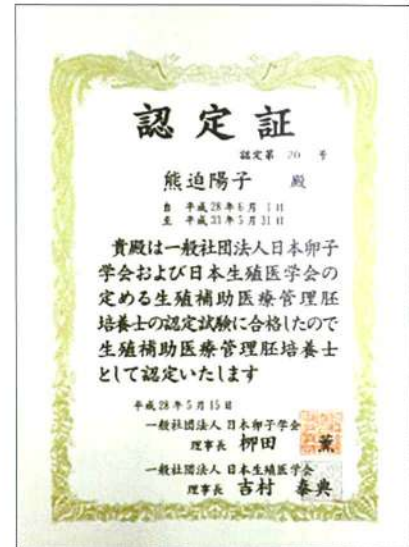 認定証
認定第 20 号
熊迫陽子 殿
自 平成28年6月1日
至 平成33年5月31日
貴殿は一般社団法人日本卵子
学会および日本生殖医学会の
定める生殖補助医療管理胚
培養士の認定試験に合格したので
生殖補助医療管理胚培養士
として認定いたします
平成28年5月15日
一般社団法人 日本卵子学会
理事長 柳田 薫
一般社団法人 日本生殖医学会
理事長 吉村 泰典